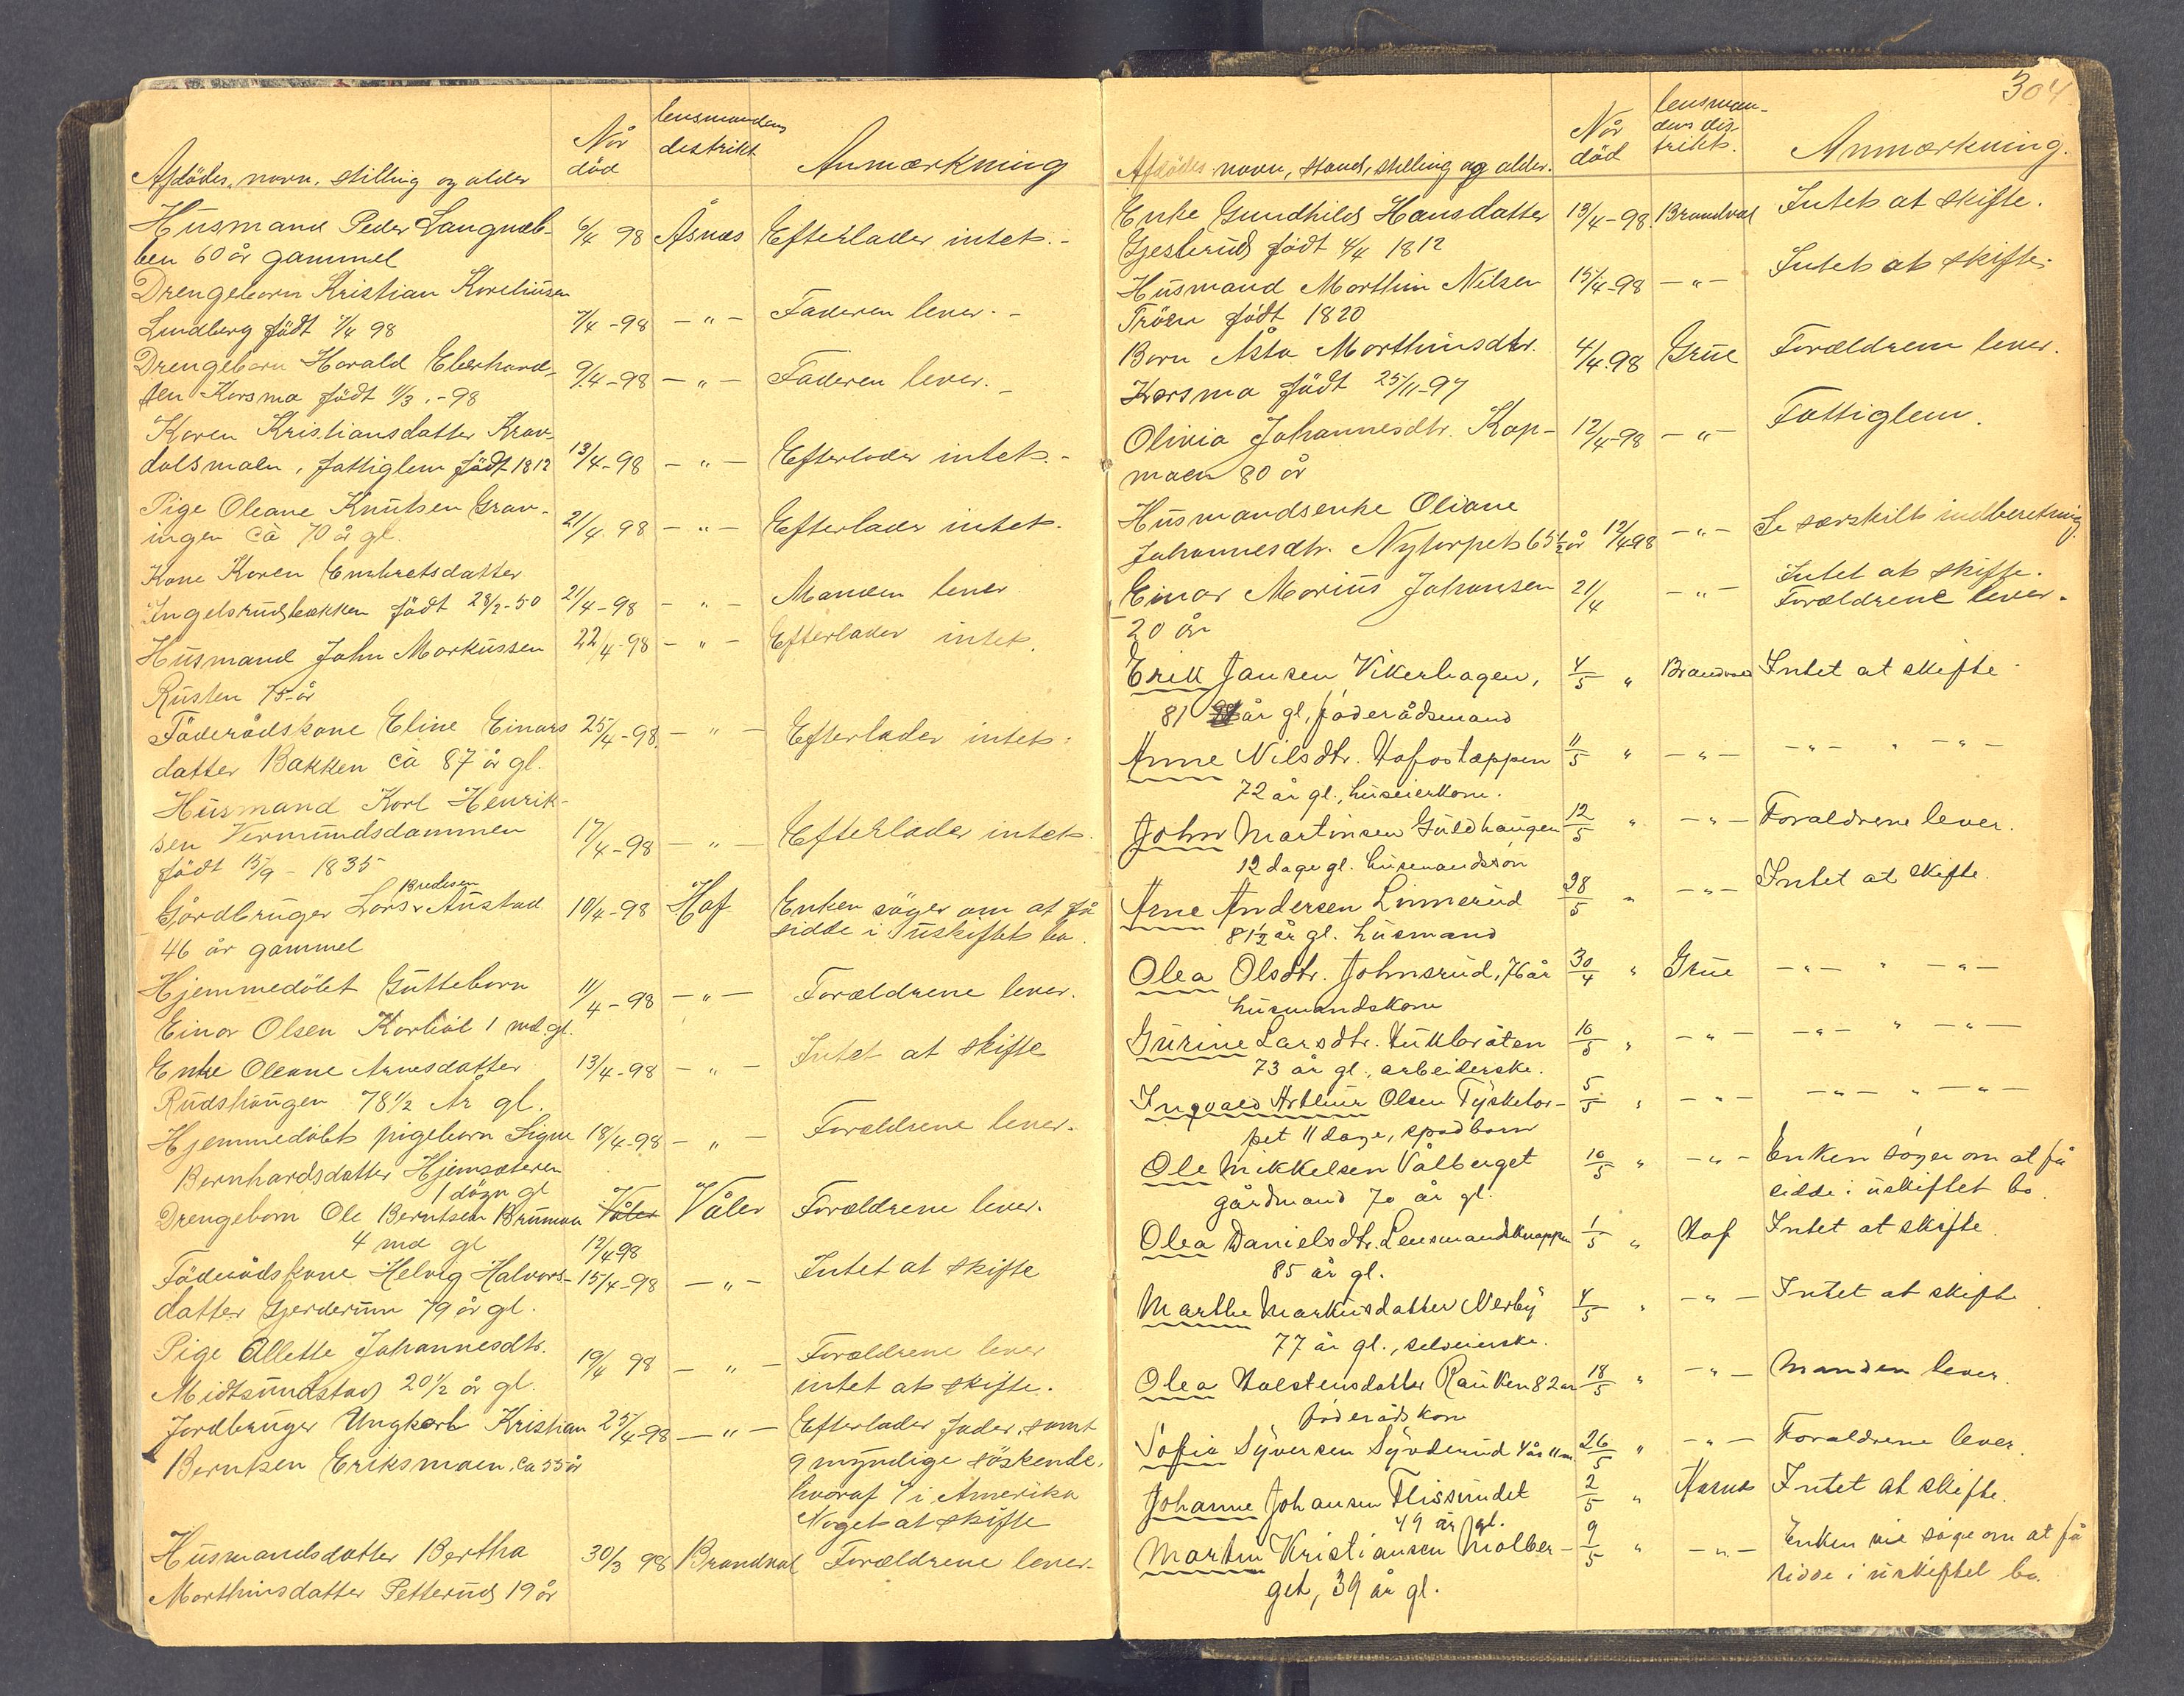 Afdödes navn, stilling og alder
Når död
lensmandens distrikt
Anmærkning
Husmand Peder Langnæb- 6/4 98 Åsnes Efterlader intet.-
ben 60 år gammel
Drengebarn Kristian Koreliusen
Lindberg födt 7/4 98 7/4-98 -"- Faderen lever.-
Drengebarn Harald Eberhard-
sen Korsmo födt 11/3.-98 9/4-98 -"- Faderen lever.-
Karen Kristiansdatter Krav-
dalsmoen, fattiglem födt 1812 13/4-98 -"- Efterlader intet.-
Pige Oleane Knutsen Grav-
ingen ca 70 år gl. 21/4 98 -"- Efterlader intet.
Kone Karen Embretsdatter
Ingelsrudsbækken födt 28/2-50 21/4-98 -"- Manden lever
Husmand John Markussen 22/4-98 -"- Efterlader intet.
Rusten 75 år
Föderådskone Eline Einars 25/4-98 -"- Efterlader intet.
datter Bakken ca 87 år gl.
Husmand Karl Henrik-
sen Vermundsdammen 17/4-98 -"- Efterlader intet.
födt 15/9-1835
Bredesen
Gårdbruger Lars Austad 10/4-98 Hof Enken söger om at få
46 år gammel sidde i uskiftet bo.
Hjemmedöbt Gutteborn 11/4-98 -"- Forældrene lever.
Einar Olsen Karlsöl 1 md. gl.
Enke Oleane Arnesdatter 13/4-98 -"- Intet at skifte
Rudshaugen 78 1/2 År gl.
Hjemmedöbt pigebarn Signe 18/4-98 -"- Forældrene lever.
Bernhardsdatter Hjemsæteren
1 dögn gl
Drengebarn Ole Berntsen Brumoen Våler Våler Forældrene lever.
4 md gl 12/4 98
Föderådskone Helvig Halvors- 15/4-98 -"- Intet at skifte
datter Gjerderum 79 år gl.
Pige Allette Johannesdtr. 19/4 98 -"- Forældrene lever
Midtsundstad 20 1/2 år gl. intet at skifte.
Jordbruger Ungkarl Kristian 25/4-98 -"- Efterlader fader, samt
Berntsen Eriksmoen, ca 55 år 9 myndige söskende,
hvoraf 7 i Amerika
Noget at skifte
Husmandsdatter Bertha 30/3 98 Brandval Forældrene lever.
Morthinsdatter Petterud 19 år
304
Afdödes navn, stand, stilling og alder.
Når död
lensman-
dens dis-
trikt.
Anmærkning.
Enke Gundhild Hansdatter 13/4-98 Brandval Intet at skifte.
Gjesterud födt 4/4 1812
Husmand Morthin Nilsen 15/4-98 -"- Intet at skifte.
Tröen födt 1820
Barn Åsta Morthinsdtr. 4/4.98 Grue Forældrene lever.
Korsmo födt 25/11-97
Olivia Johannesdtr. Kop- 12/4-98 -"- Fattiglem.
moen 80 år
Husmandsenke Oliane
Johannesdtr. Nytorpet 65 1/2 år 12/4 98 -"- Se særskilt indberetning.
Einar Marius Johansen 21/4 -"- Intet at skifte.
20 år Forældrene lever.
Erik Jansen Vikerhagen, 4/5 " Brandval Intet at skifte.
81 år gl, föderådsmand
Anne Nilsdtr. Hofostæppen 11/5 " -"- -"- " -"-
72 år gl., huseierkone.
John Martinsen Guldhaugen 12/5 " -"- Forældrene lever.
12 dage gl. husmandssön
Arne Andersen Linnerud 28/5 " -"- Intet at skifte.
81 1/2 år gl. husmand
Olea Olsdtr. Johnsrud, 76 år 30/4 " Grue -"- " -"-
husmandskone
Gurine Larsdtr. Kukbråten 10/5 " -"- -"- " -"-
73 år gl., arbeiderske.
Ingvald Arthur Olsen Tysketor- 5/5 " -"- -"- " -"-
pet 11 dage, spædbarn
Ole Mikkelsen Vålberget 10/5 " -"- Enken söger om at få
gårdmand 70 år gl. sidde i uskiftet bo.
Olea Danielsdtr. Lensmandsknappen 1/5 " Hof Intet at skifte.
85 år gl.
Marthe Markusdatter Nerby 4/5 " -"- Intet at skifte.
77 år gl., selveierske.
Olea Halstensdatter Rauken 82 år 18/5 " -"- Manden lever.
föderådskone
Sofie Syversen Syvderud 4 år 11 m. 26/5 " -"- Forældrene lever.
Johanne Johansen Flissundet 2/5 " Aasnes Intet at skifte.
49 år gl.
Martin Kristiansen Molber- 9/5 " -"- Enken vil söge om at få
get, 39 år gl. sidde i uskiftet bo.